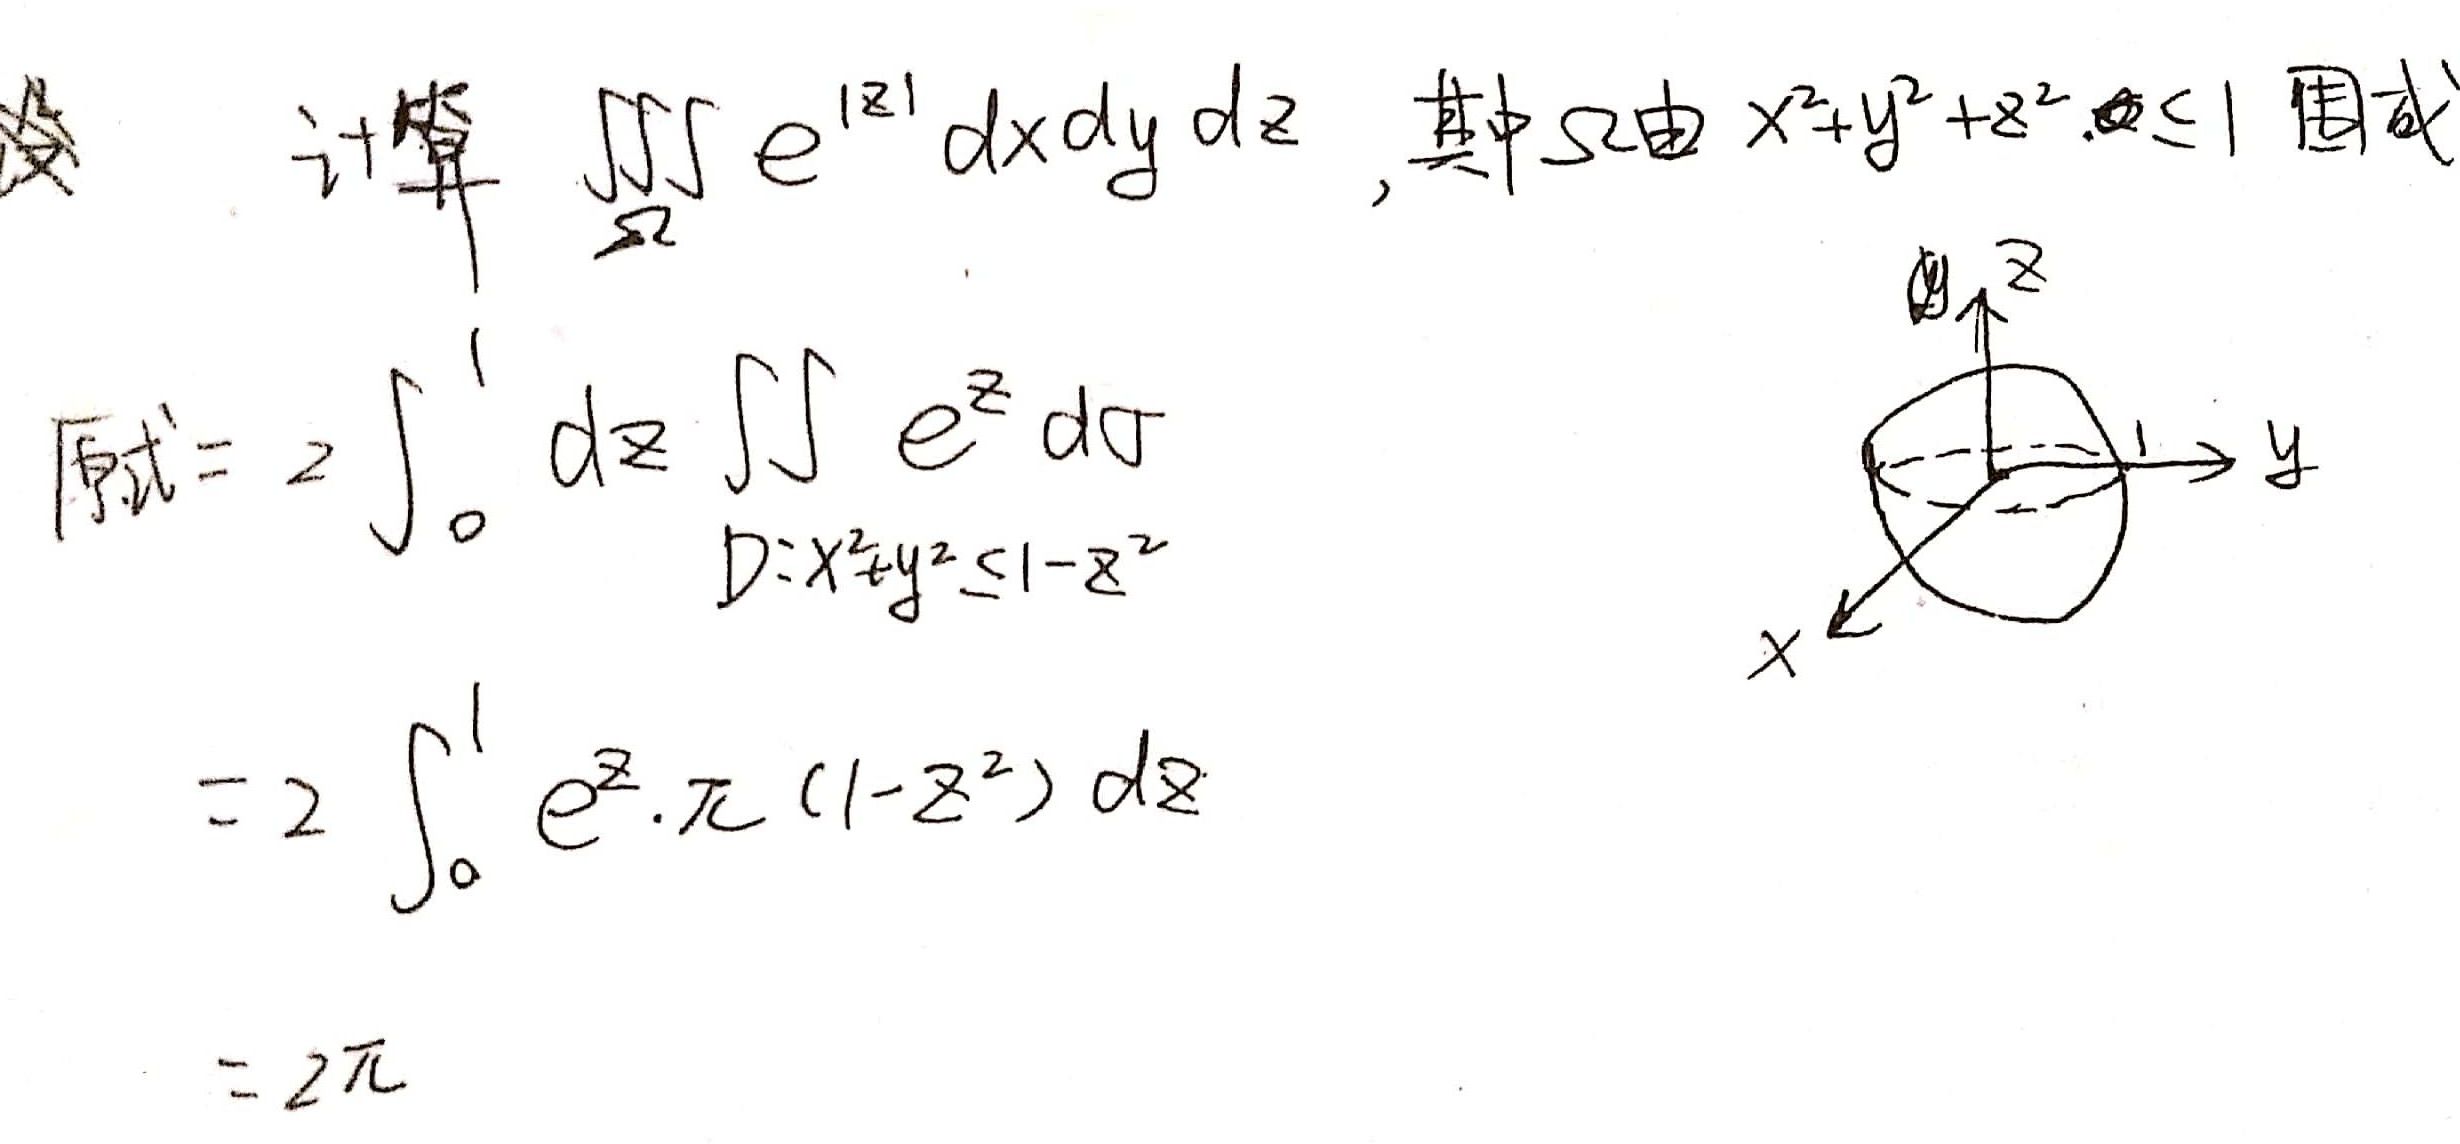 计算 ∭_Ω e^{|z|} dxdydz, 其中Ω由 x²+y²+z² ≤1 围成
z
y
1
x
原式 = 2∫_0^1 dz ∬_{D:x²+y²≤1-z²} e^z dσ
= 2∫_0^1 e^z·π(1-z²)dz
= 2π